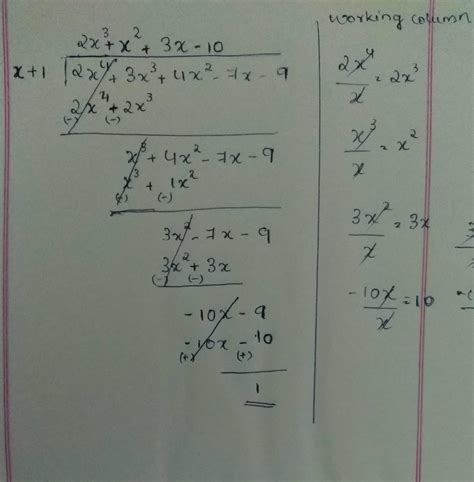 2x³ + x² + 3x - 10
x + 1 | 2x⁴ + 3x³ + 4x² - 7x - 9
2x⁴ + 2x³
(-) (-)
x³ + 4x² - 7x - 9
x³ + 1x²
(-) (-)
3x² - 7x - 9
3x² + 3x
(-) (-)
-10x - 9
-10x - 10
(+) (+)
1
working column
2x⁴/x = 2x³
x³/x = x²
3x²/x = 3x
-10x/x = 10